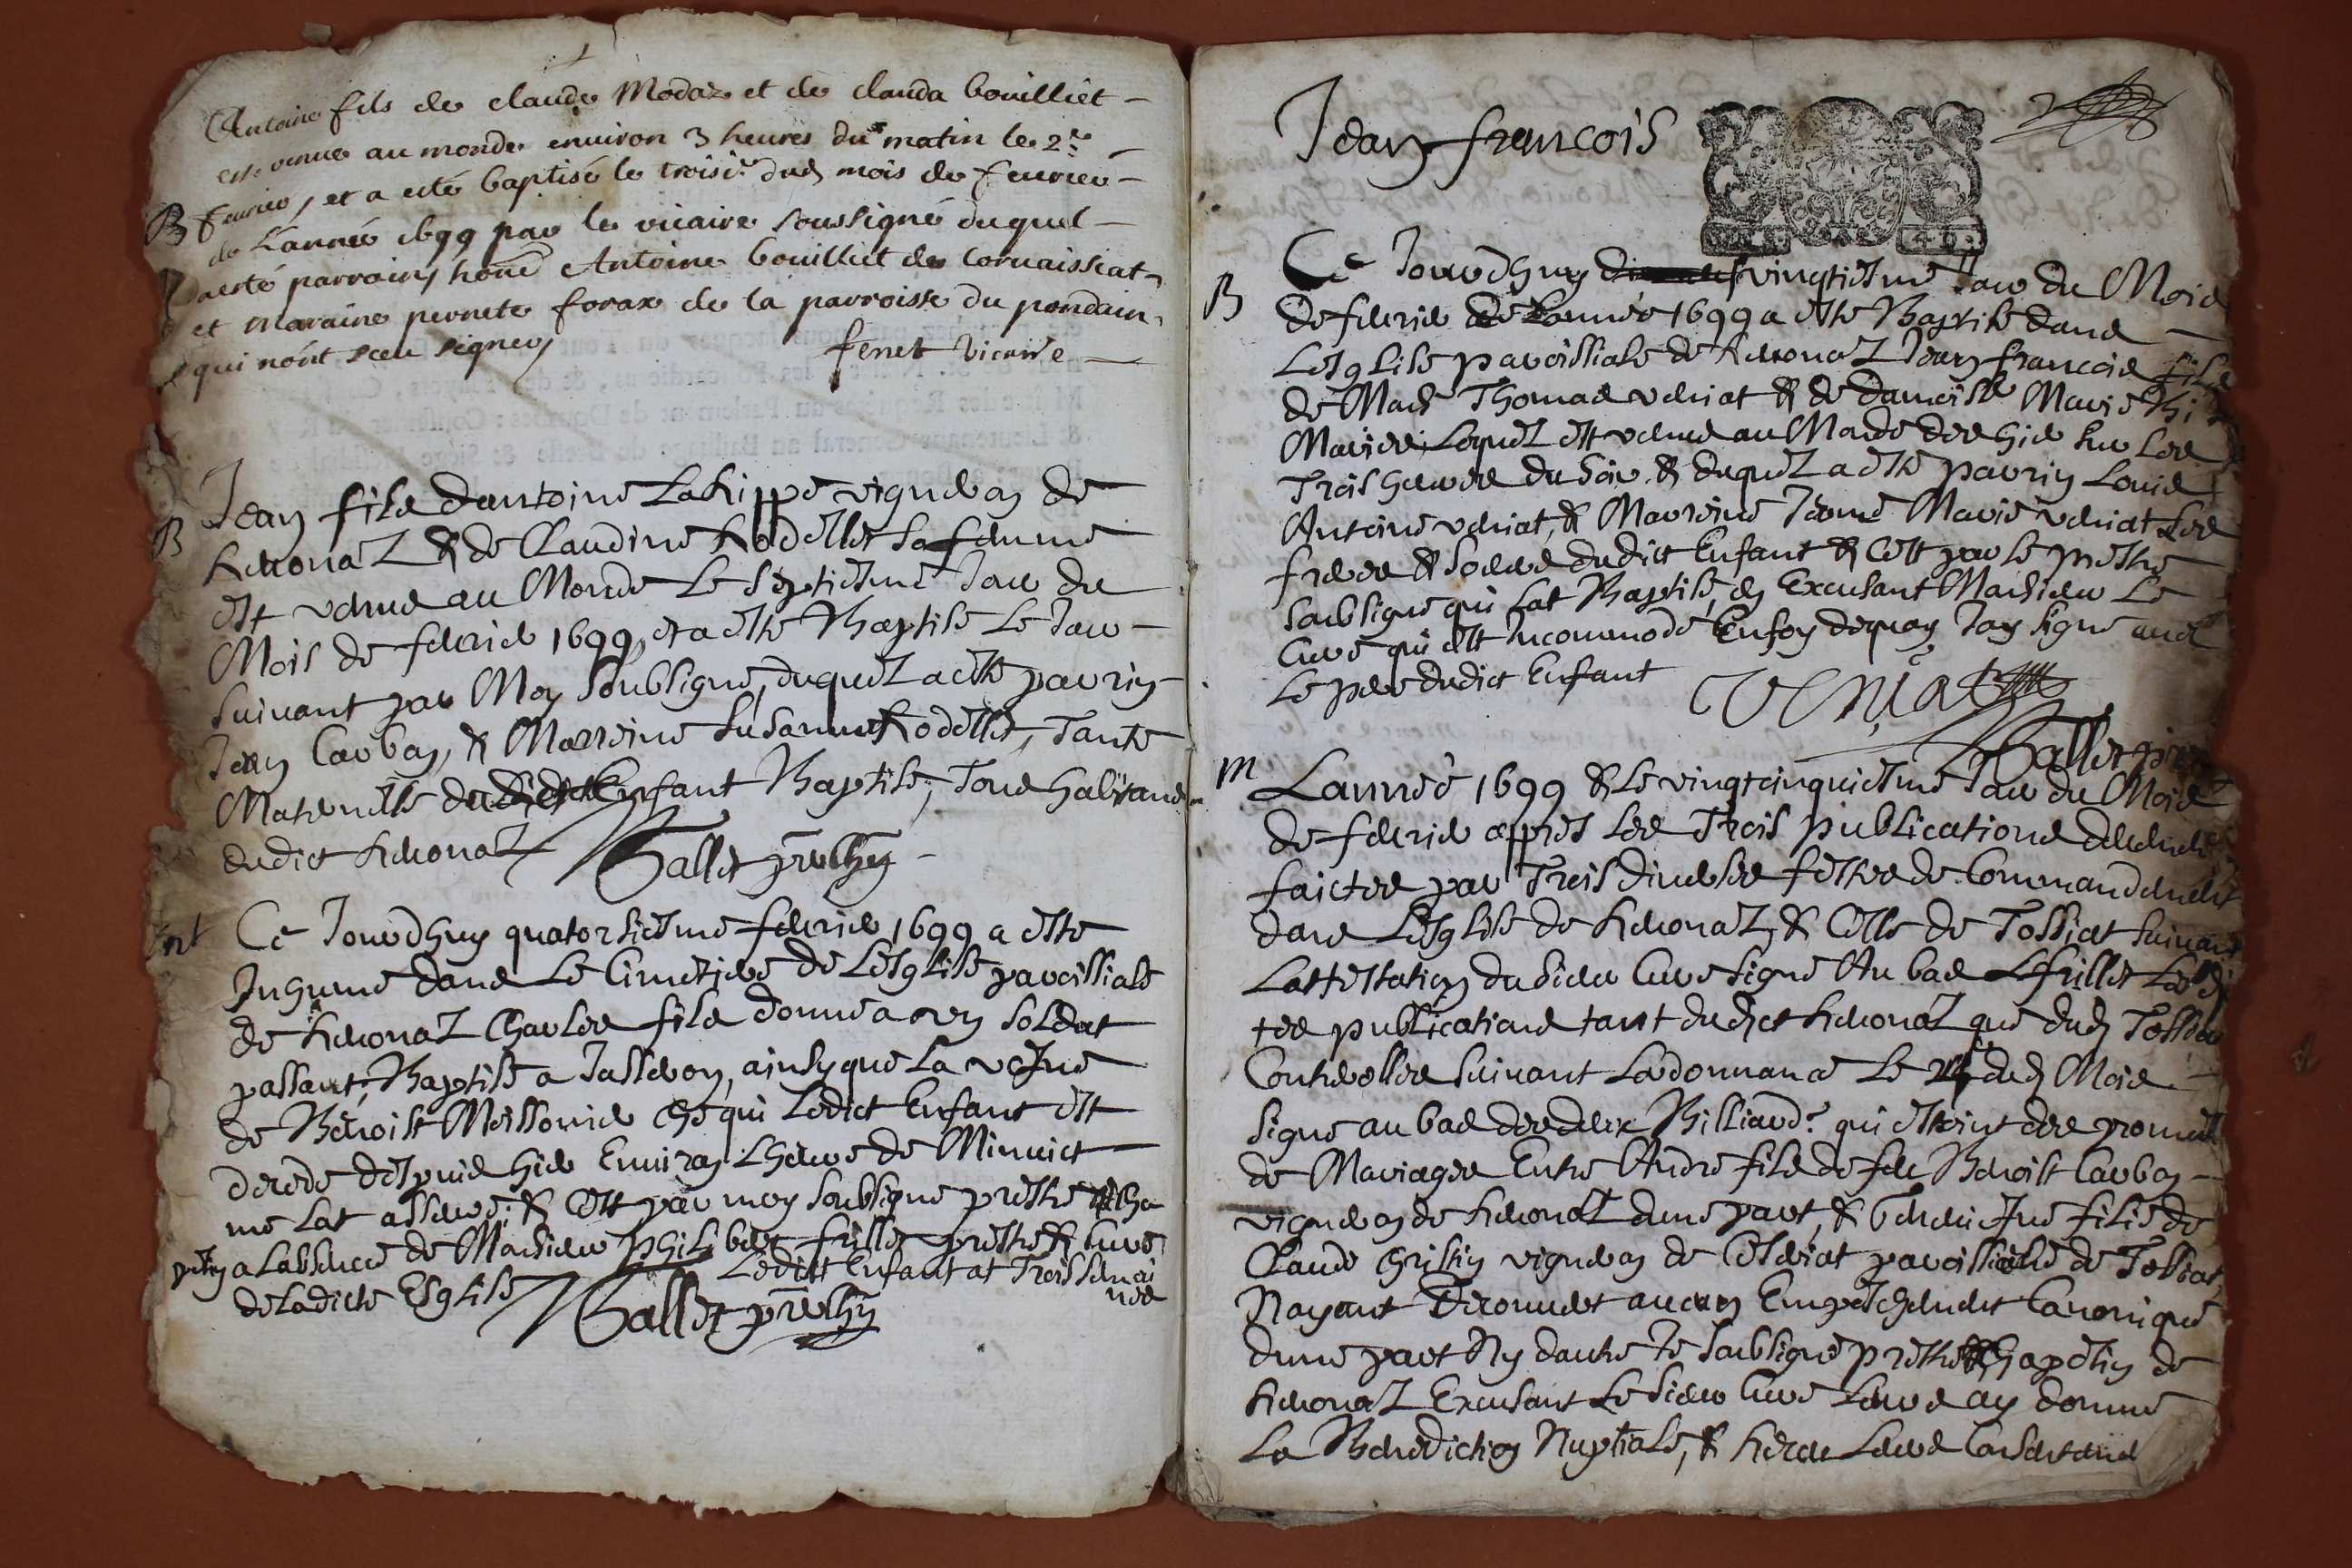 Antoine fils de claude Modaz et de clauda bouilliet
este venue au monde environ 3 heures du matin le 2e
B feurier, et a esté baptisé le troisi.e dud mois de feurier
de L'année 1699 par le vicaire soussigné duquel
a esté parrain hon.e Antoine bouilliet de Cornaissiat
et maraine pernete forax de la parroisse du pondain
qui n'ont sceu signer
fenet vicaire
B Jean fils dantoine Lakippe vigneron de
Reuonaz & de Claudine Rodette sa femme
est venue au Monde Le septiesme Jour du
Mois de feurier 1699, et a este Baptise Le Jour
suiuant par Moy soubsigne, duquel a este parrin
Jean Carbon, & Marreine Susanne Rodette, Tante
Maternelle dudict Enfant Baptise, Tous habitans
dudict Reuonaz
Gallet
Ent Ce Jourdhuy quatorsiesme feurier 1699 a este
Inhume dans Le Cimetiere de Lesglise paroissiale
de Reuonaz Charles fils donne a un soldat
passant, Baptise a Jasseron, ainsy que La vefue
de Benoist Meissonier Ché qui Ledict Enfant est
decede despuis hier Enuiron Lheure de Minuict
me Lat asseure; & Cest par moy soubsigne prestre & cha
petn a Labsence de Monsieur Philibert frillet prestre & Cure
de Ladicte Esglise Ledict Enfant at Trois semai
nes
Gallet
Jean francois
B Ce Jourdhuy vingtiesme Jour du Mois
de feurier de Lannée 1699 a este Baptise dans
Lesglise paroissiale de Reuonaz Jean francois fils
de Mads Thomas veniat & de damoiselle Marie
Maviere Lequel est venus au Monde des hier sur Les
Trois heures du soir & duquel a este parrin Louis
Antoine veniat, & Marreine Jeanne Marie veniat Les
freres & soeurs dudict Enfant & Cest par le prestre
soubsigne qui Lat Baptise, en Excusant Monsieur Le
Cure qui est Incommode Enfoy dequoy Jay signe auec
Le pere dudict Enfant
Veniat
Gallet
m Lannée 1699 & Le vingtcinquiesme Jour du Mois
de feurier appres Les Trois publications
faictes par Trois diuerses festes de Commandement
dans Lesglise de Reuonaz, & Celle de Tossiat suiuant
Lattestation du sieur Cure signe Au bas frillet
tes publications tant dudict Reuonaz que dud Tossiat
Contrerollee suiuant Lordonnance Le dud Mois
signe au bas des deux Billiard? qui estoint des promesses
de Mariages Entre Andre fils de feu Benoist Carbon
vigneron de Reuonaz dune part, & filie de
Claude vigneron de paroissiale de Tossiat
Nayant decouuert aucun Empeschement Canonique
dune part Ny dautre Je soubsigne prestre & Chapelin de
Reuonaz Excusant Le sieur Cure Leurs ay donne
La Benediction Nuptiale, & Receu Leurs Consentans